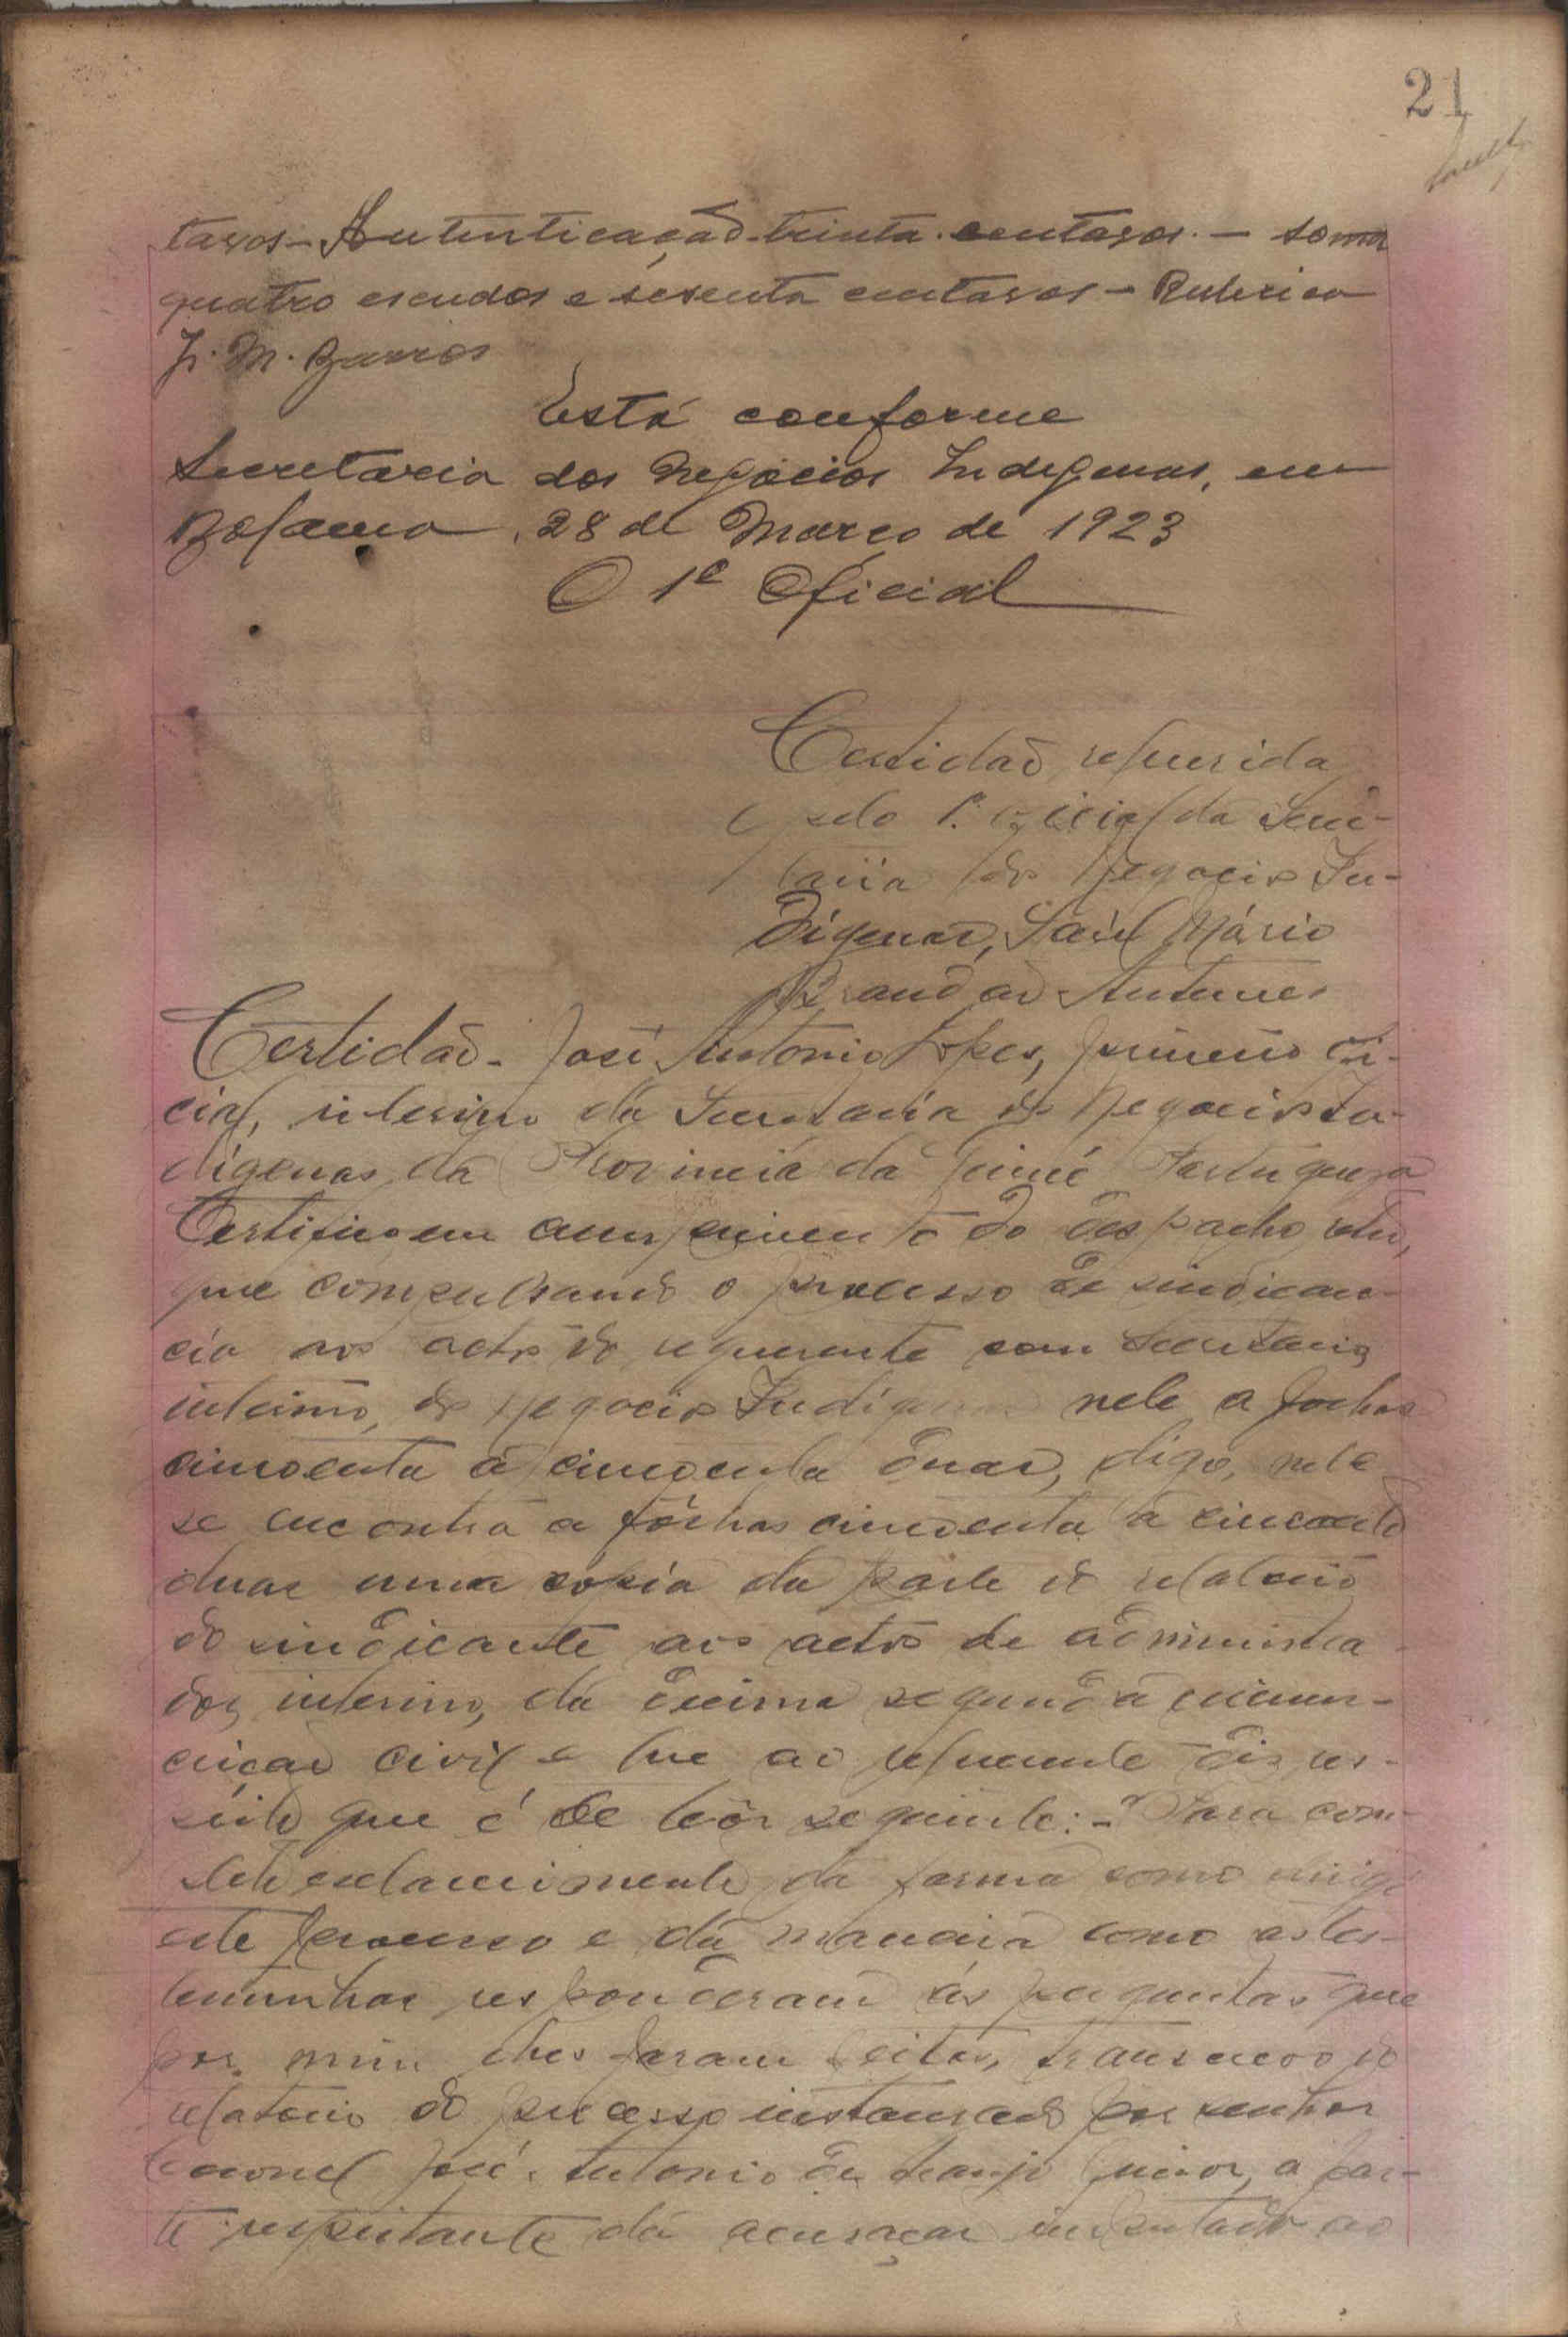 21
tavos - Autenticação - trinta centavos. - soma
quatro escudos e sesenta centavos - Rubrica
J. M. Barros
Está conforme
Secretaria dos Negócios Indigenas, em
Bolama, 28 de Março de 1923
O 1º Oficial
Certidão requerida
pelo 1º oficial da Secre-
taria dos Negocios In-
dígenas, Saúl Mário
Brandão Antunes
Certidão - José Antonio Lopes, primeiro ofi-
cial, interino da Secretaria dos Negocios In-
dígenas da Provincia da Guiné Portuguesa
Certifico em cumprimento do despacho retro,
que compulsando o processo de sindican-
cia aos actos do requerente com Secretario
interino, dos Negocios Indígenas nele a folhas
cincoenta a cincoenta duas, digo, nele
se encontra a fôlhas cincoenta a cincoenta
duas uma cópia da parte do relatorio
do sindicante aos actos de administra-
dor, interino, da décima segunda circuns-
crição civil e que ao requerente diz res-
peito que é de teôr seguinte: - "Para com-
pleto esclarecimento da forma como dirigi
este processo e da maneira como as tes-
temunhas responderam ás perguntas que
por mim lhes foram feitas, transcrevo do
relatorio do processo instaurado por senhor
Coronel José Antonio de Araujo Junior, a par-
te respeitante da acusação ao